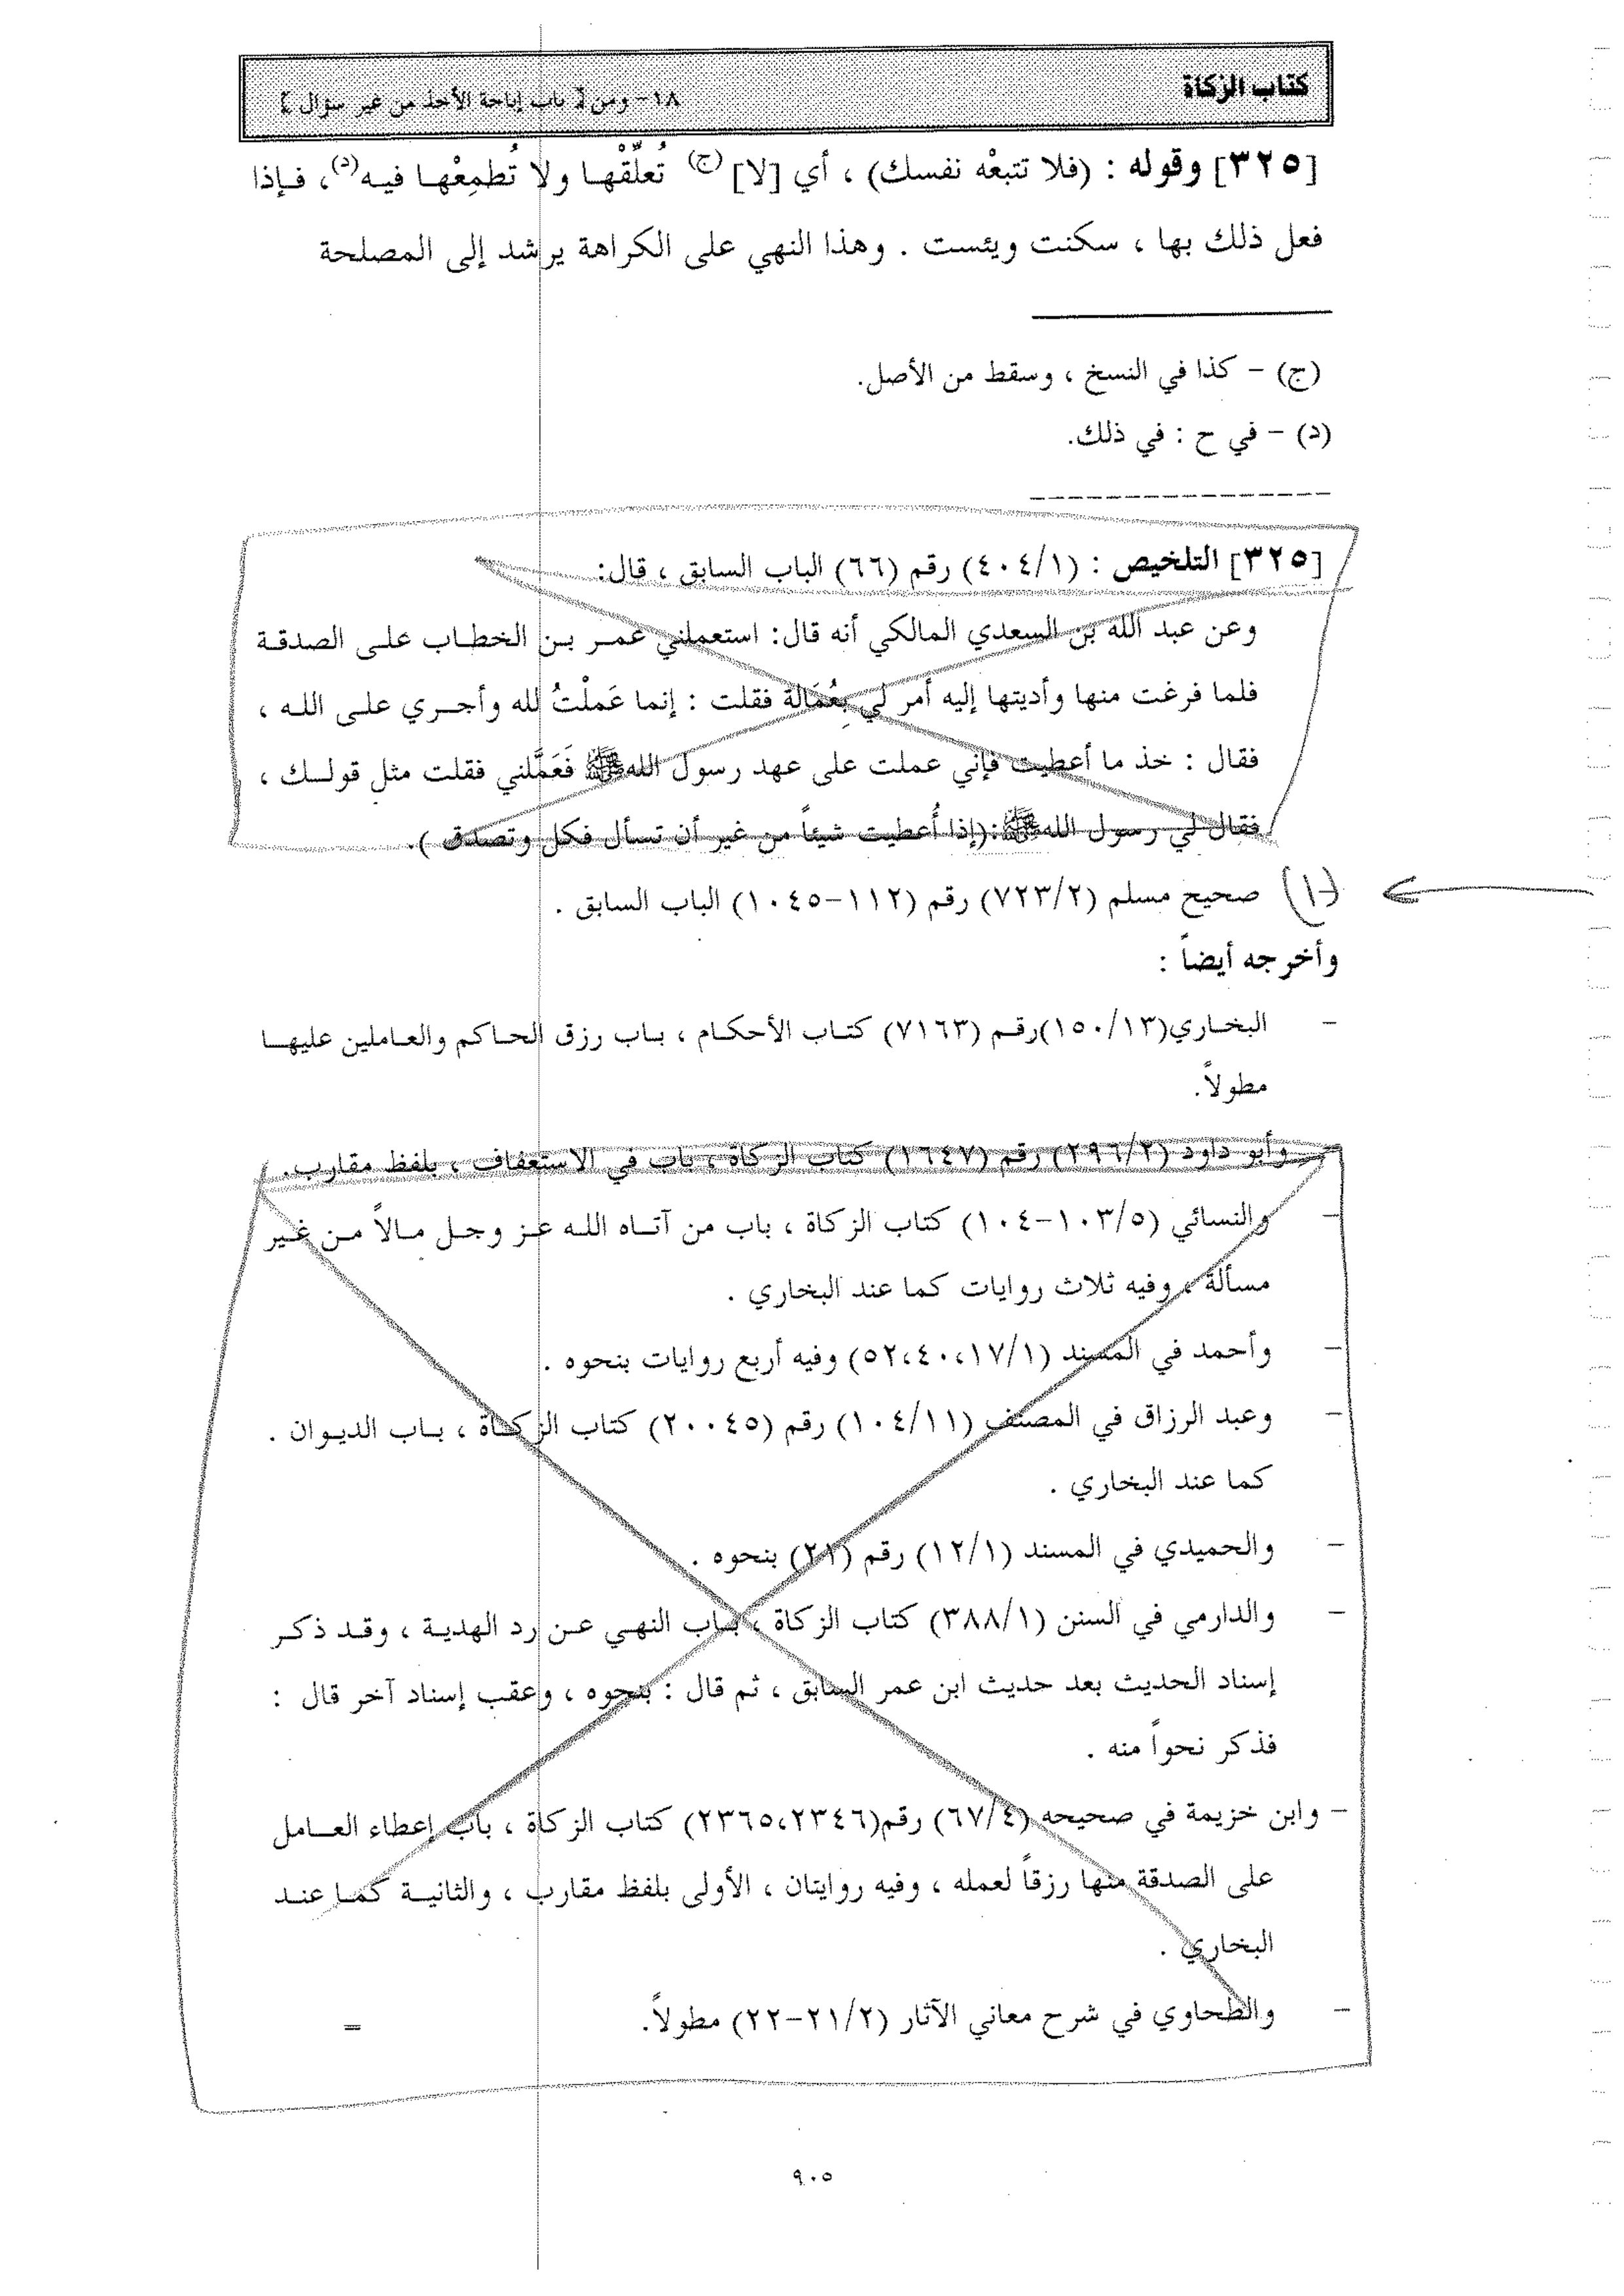 كتاب الزكاة
١٨- ومن [ باب إباحة الأخذ من غير سؤال ]
[٣٢٥] وقوله : (فلا تتبعْه نفسك) ، أي [لا] (ج) تُعلِّقْها ولا تُطمِعْها فيه(د)، فإذا
فعل ذلك بها ، سكنت ويئست . وهذا النهي على الكراهة يرشد إلى المصلحة
(ج) - كذا في النسخ ، وسقط من الأصل.
(د) - في ح : في ذلك.
[٣٢٥] التلخيص : (٤٠٤/١) رقم (٦٦) الباب السابق ، قال:
وعن عبد الله بن السعدي المالكي أنه قال: استعملني عمر بن الخطاب على الصدقة
فلما فرغت منها وأديتها إليه أمر لي بِعُمَالة فقلت : إنما عَملْتُ لله وأجري على الله ،
فقال : خذ ما أعطيت فإني عملت على عهد رسول اللهﷺ فَعَمَّلني فقلت مثل قولك ،
فقال لي رسول اللهﷺ:(إذا أُعطيت شيئاً من غير أن تسأل فكل وتصدق ).
(١-) صحيح مسلم (٧٢٣/٢) رقم (١١٢-١٠٤٥) الباب السابق .
وأخرجه أيضاً :
- البخاري(١٥٠/١٣)رقم (٧١٦٣) كتاب الأحكام ، باب رزق الحاكم والعاملين عليها
مطولاً.
وأبو داود (٢٩٦/٢) رقم (١٦٤٧) كتاب الزكاة ، باب في الاستعفاف ، بلفظ مقارب.
- والنسائي (١٠٣/٥-١٠٤) كتاب الزكاة ، باب من آتاه الله عز وجل مالاً من غير
مسألة ، وفيه ثلاث روايات كما عند البخاري .
- وأحمد في المسند (٥٢،٤٠،١٧/١) وفيه أربع روايات بنحوه .
- وعبد الرزاق في المصنف (١٠٤/١١) رقم (٢٠٠٤٥) كتاب الزكاة ، باب الديوان .
كما عند البخاري .
- والحميدي في المسند (١٢/١) رقم (٢١) بنحوه .
- والدارمي في السنن (٣٨٨/١) كتاب الزكاة ، باب النهي عن رد الهدية ، وقد ذكر
إسناد الحديث بعد حديث ابن عمر السابق ، ثم قال : بنحوه ، وعقب إسناد آخر قال :
فذكر نحواً منه .
- وابن خزيمة في صحيحه (٦٧/٤) رقم(٢٣٦٥،٢٣٤٦) كتاب الزكاة ، باب إعطاء العامل
على الصدقة منها رزقاً لعمله ، وفيه روايتان ، الأولى بلفظ مقارب ، والثانية كما عند
البخاري .
- والطحاوي في شرح معاني الآثار (٢١/٢-٢٢) مطولاً. =
٩٠٥